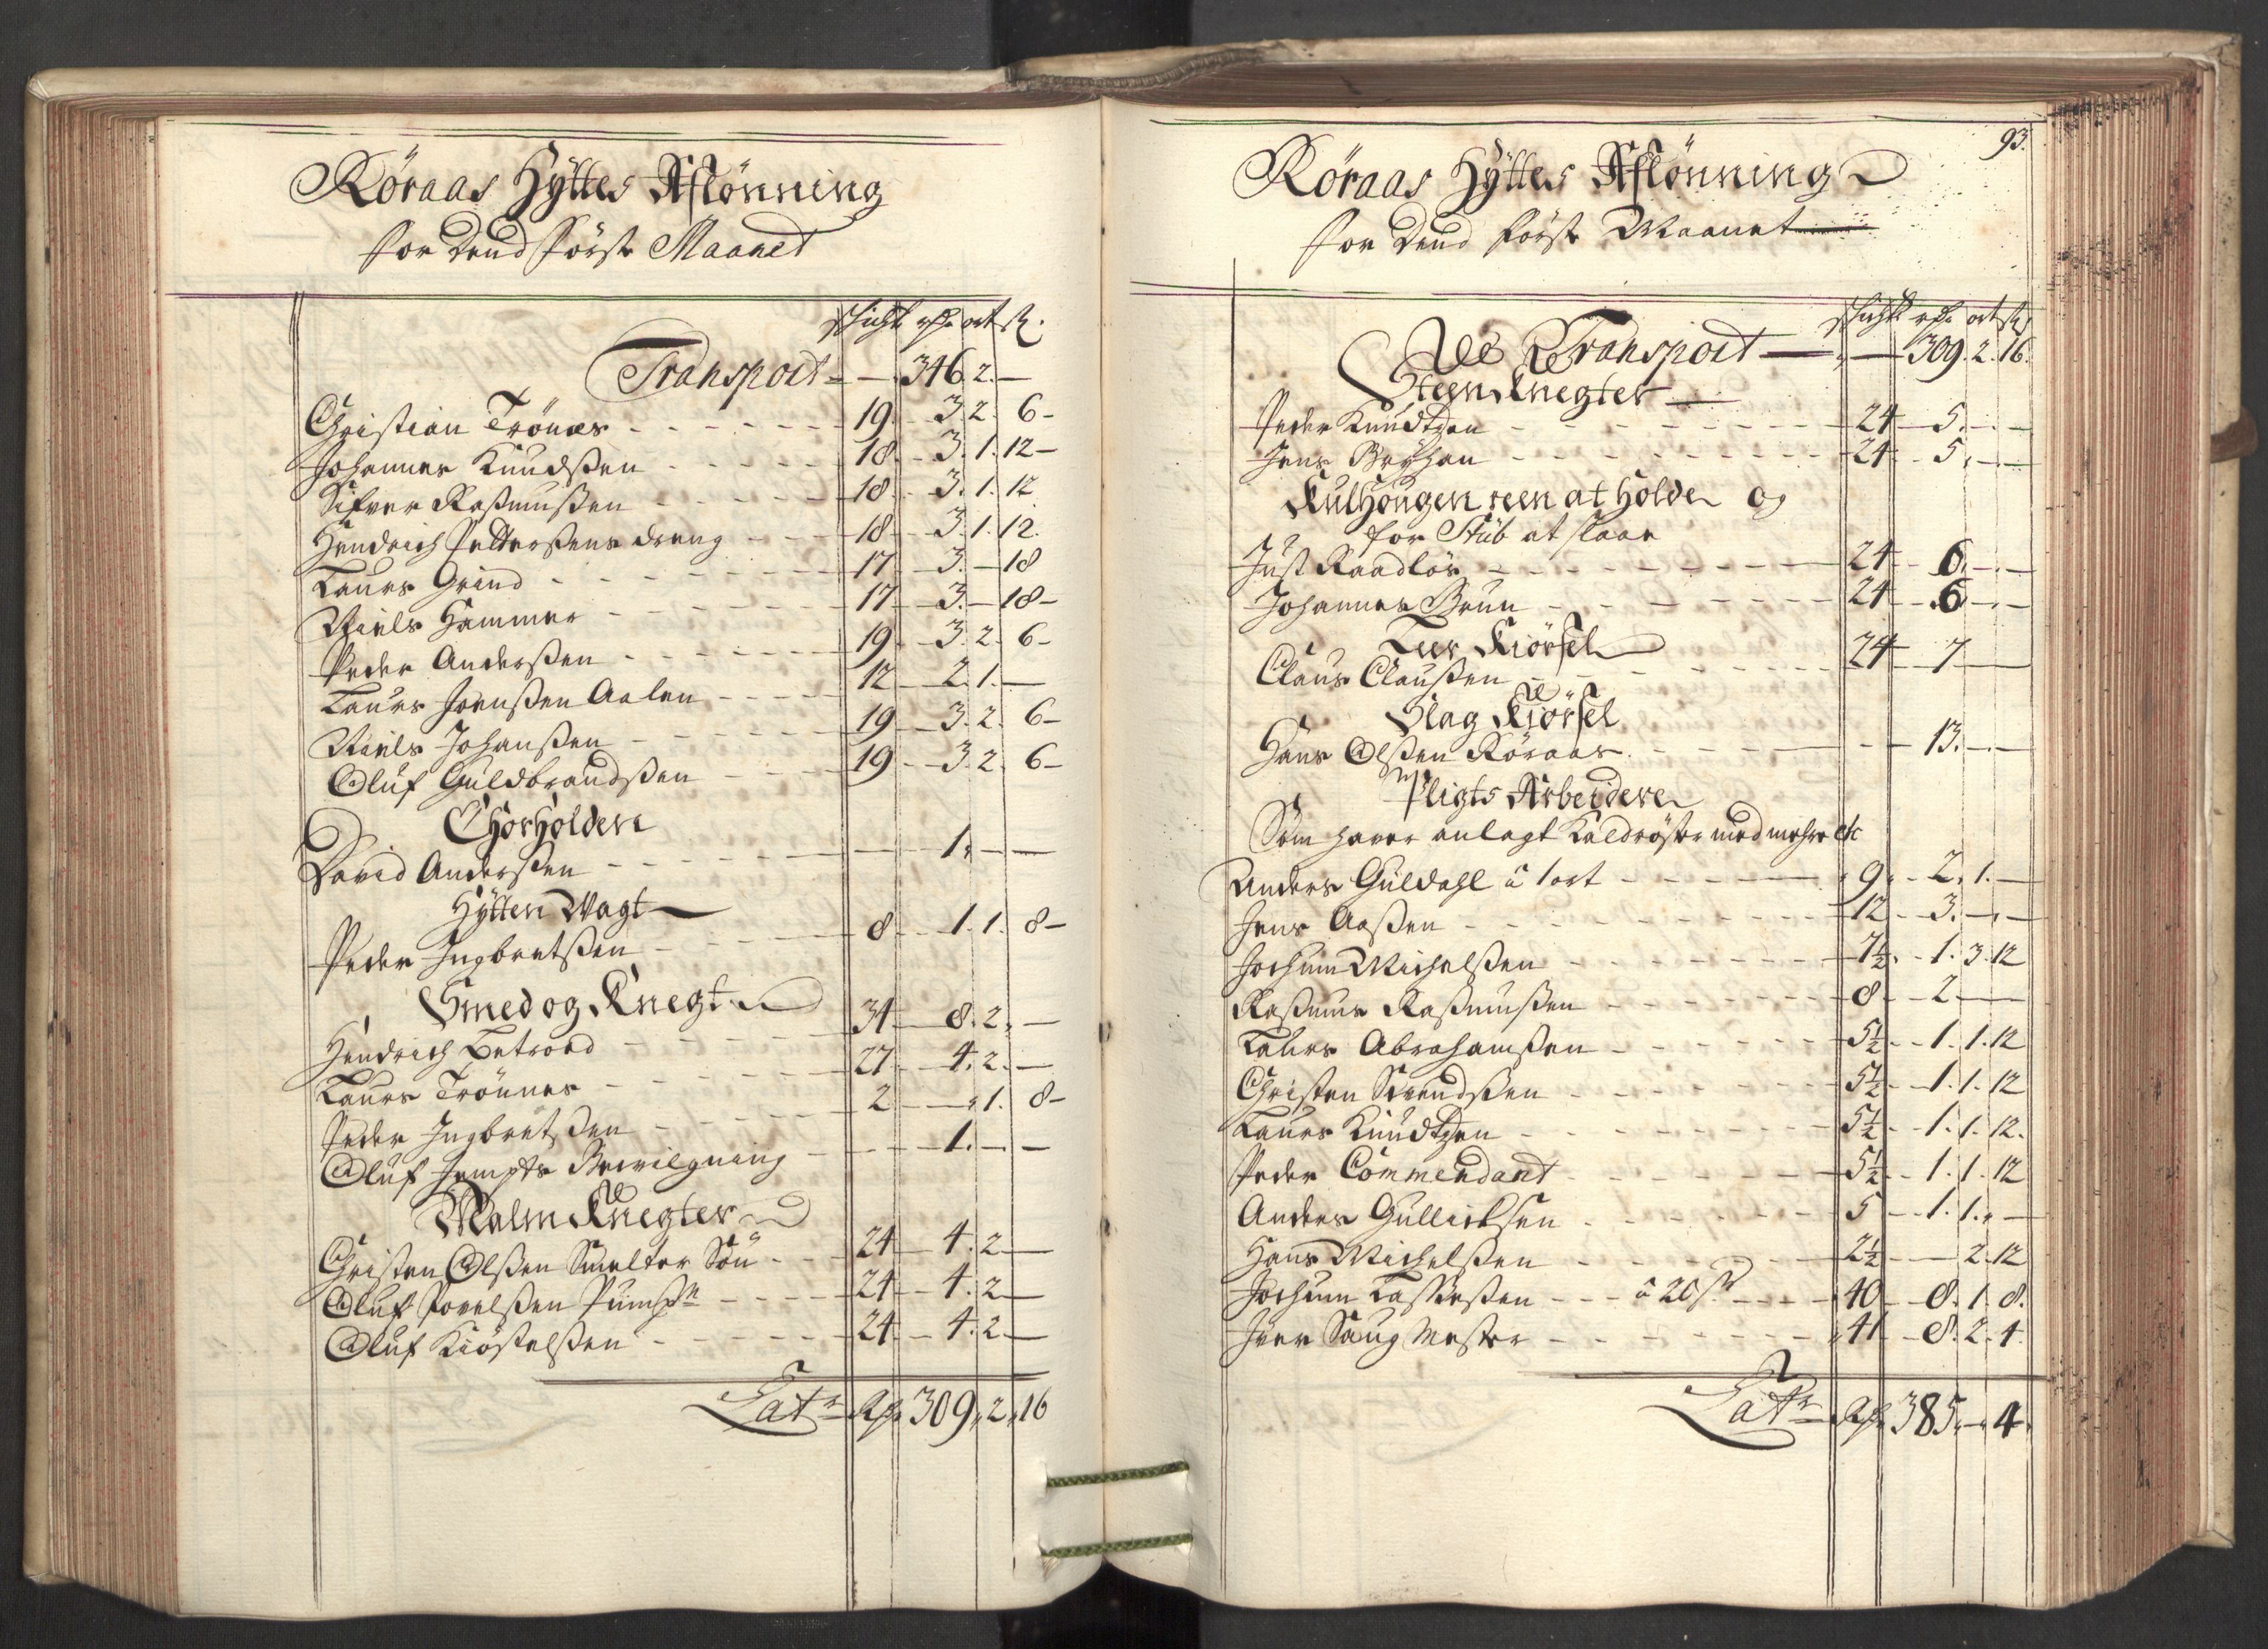 Röraas Hÿttes Afl̈onning
for dend Förste Maanet
schicht rdr ort sk.
Transport 346. 2. —
Christian Trönæs 19 3. 2. 6
Johannes Knudssen 18 3. 1. 12
Sifver Rasmussen 18 3. 1. 12
Hendrich Pettersens dreng 18 3. 1. 12
Laurs Grind 17 3. — 18
Niels Hammer 17 3. — 18
Peder Anderssen 19 3. 2. 6
Laurs Joenssen Aalen 12 2. 1. —
Niels Johanssen 19 3. 2. 6
Oluf Guldbrandssen 19 3. 2. 6
Chorholdere
David Anderssen — 1. — —
Hÿtten Wagt
Peder Ingbretssen 8 1. 1. 8
Smed og Knegte
Hendrich 34 8. 2. —
Laurs Trönnes 27 4. 2. —
Peder Ingbretssen 2 — 1. 8
Oluf Jempts Bevilgning — 1. — —
Malm Knegter
Christen Olssen Smelter Sön 24 4. 2 —
Oluf Povelssen 24 4. 2 —
Oluf Kiöstelssen 24 4. 2 —
Lats Rdr 309, 2, 16
93.
Röraas Hÿttes Aflönning
for dend förste Maanet
schicht rdr ort sk
Transport 309. 2. 16.
Steen Knegter
Peder Knudtzen 24 5. — —
Jens Brÿhan 24 5. — —
Kulhougen reen at Holde og
for Stüb at slaae
Just Raadlös 24 6. — —
Johannes Brun 24 6 — —
Leer Kiörsel
Claus Claussen 24 7 —
Slag Kiörsel
Hans Olssen Röraas 13. — —
Pligts Arbeidere
Som haver anlagt Kaldröster med mehre etc
Anders Guldahl â 1 ort 9 2. 1. —
Jens Aassen 12 3. — —
Jochum Michelssen 7½ 1. 3. 12
Rasmus Rasmussen 8 2 — —
Laurs Abrahamssen 5½ 1. 1. 12
Christen Svendssen 5½ 1. 1. 12
Laurs Knudtzen 5½ 1. 1. 12.
Peder Commendant 5½ 1. 1. 12
Anders Gullichsen 5 1. 1. —
Hans Michelssen 2½ — 2. 12
Jochum Lassessen â 20 s 40 8. 1. 8.
Iver Saug Mester 41 8. 2. 4
Lats Rdr 385. — 4.